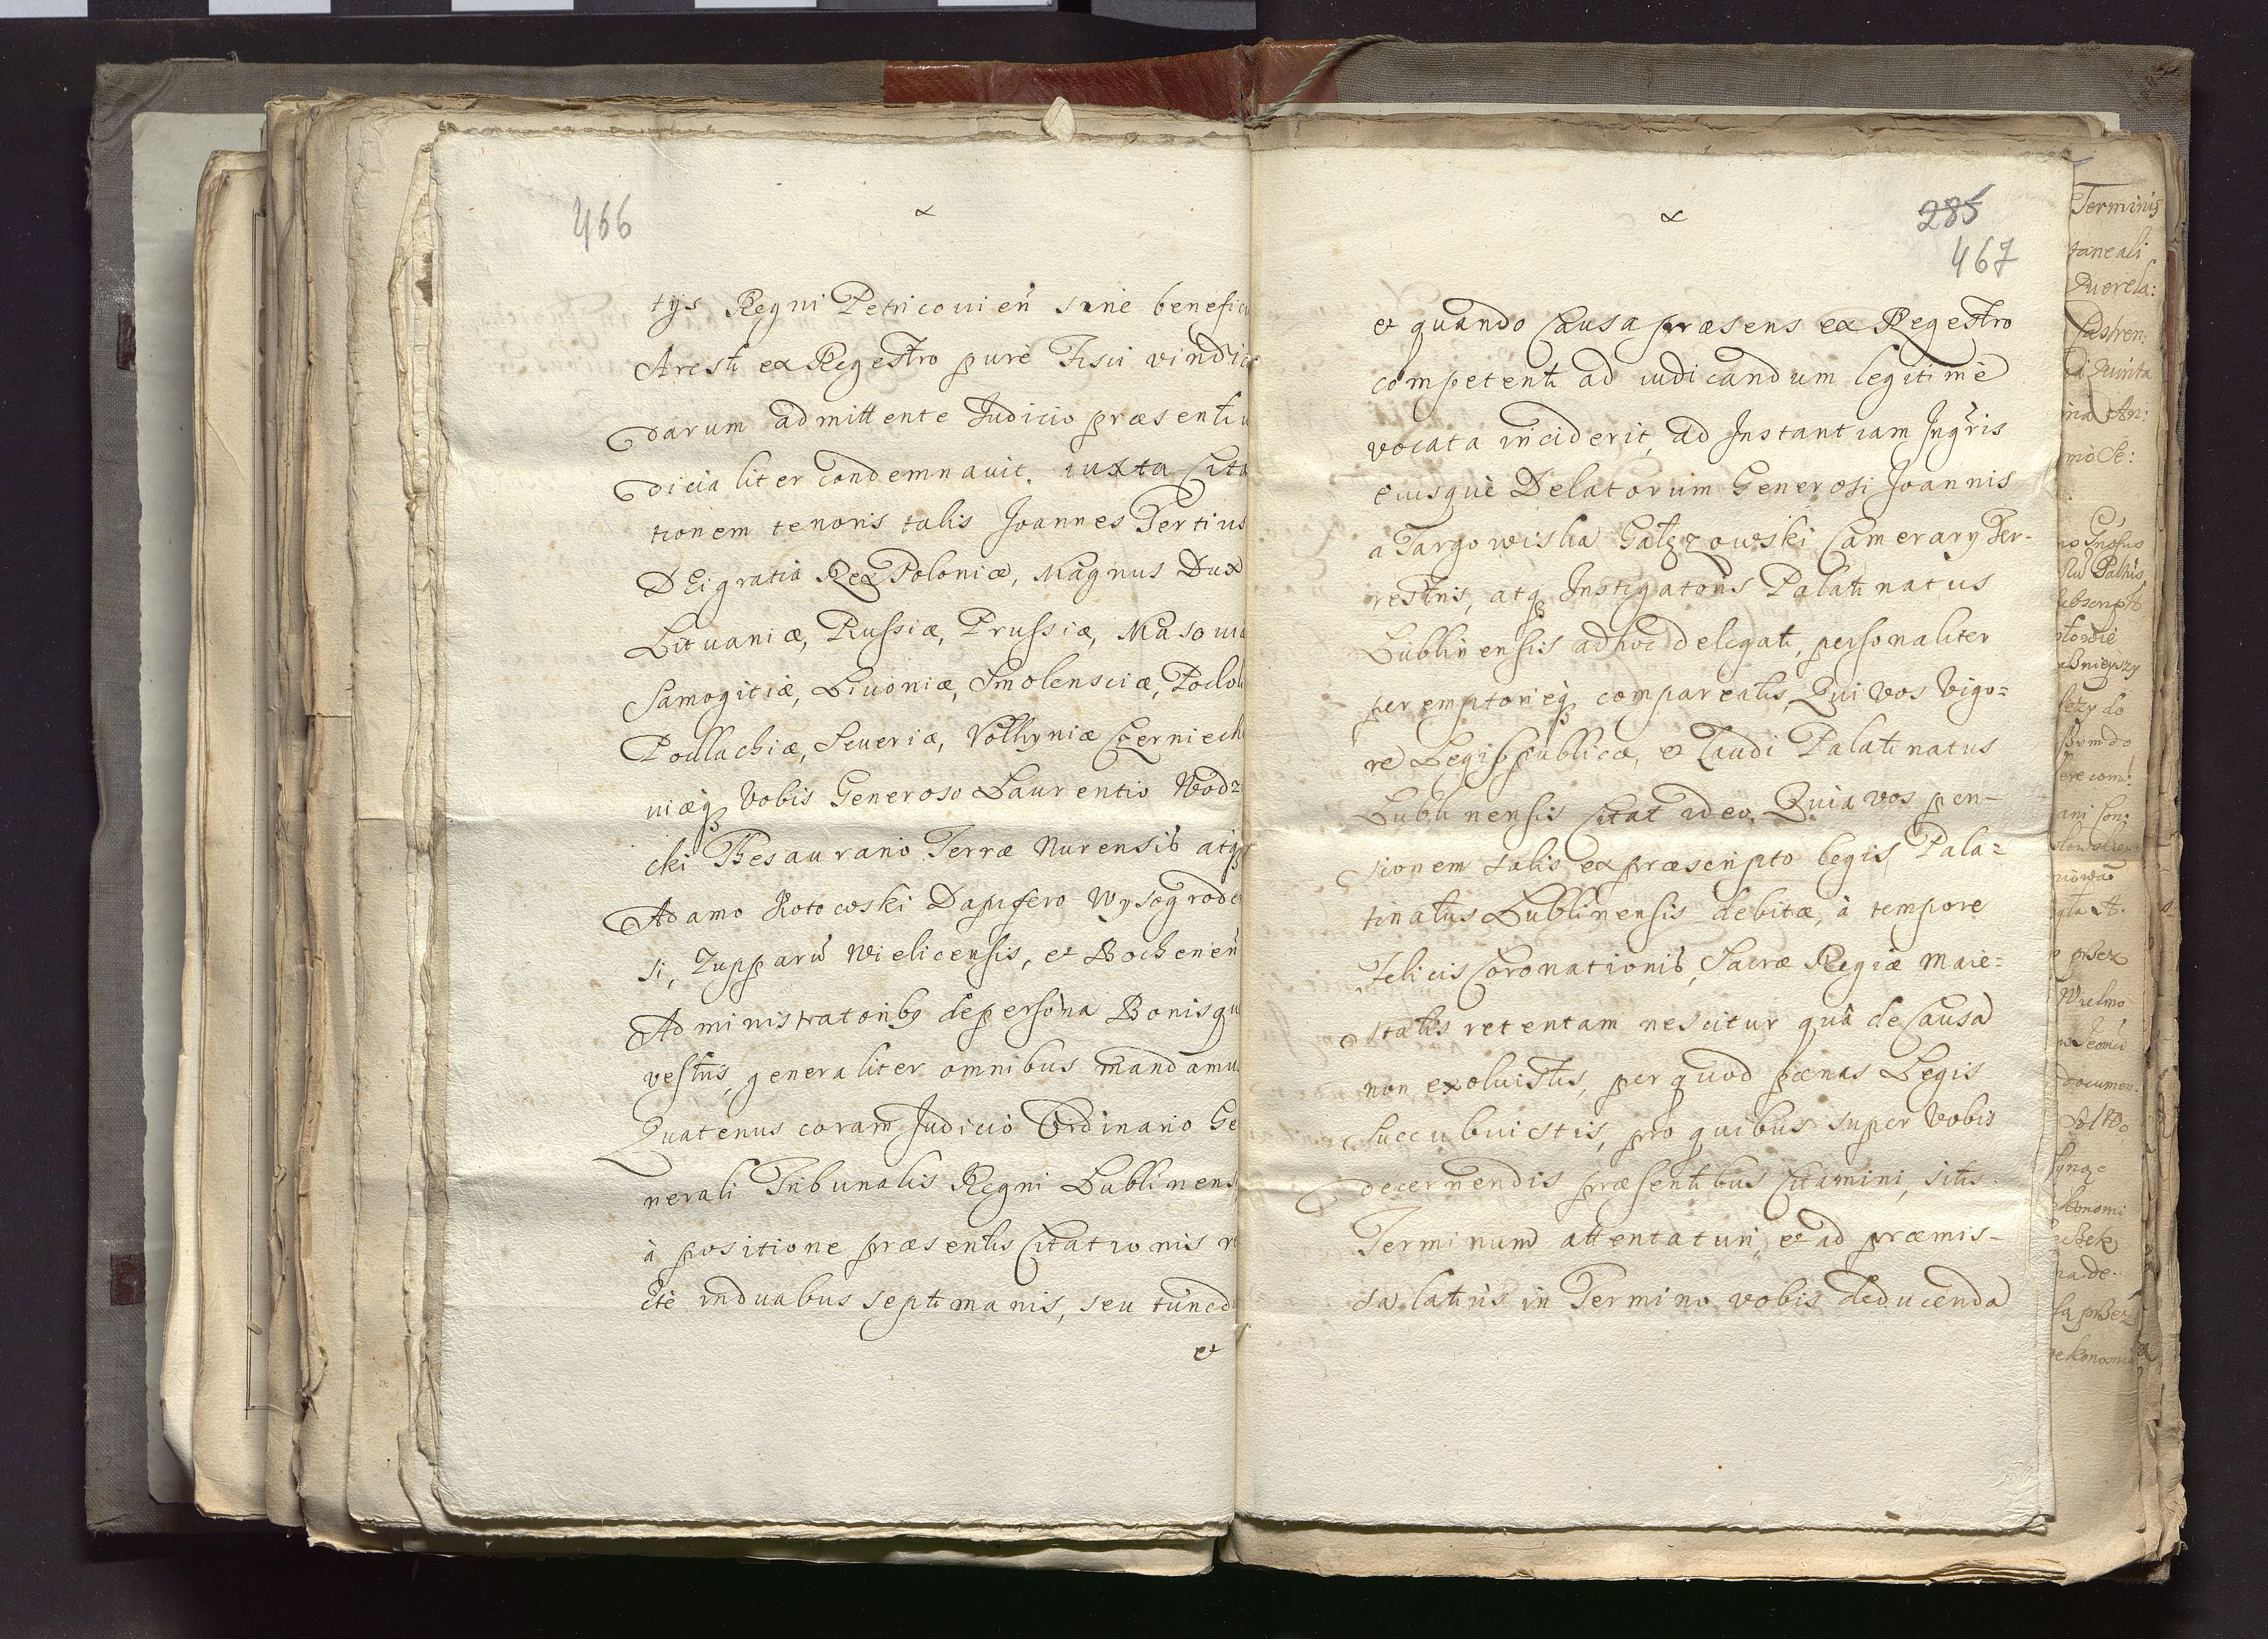 466
tijs Regni Petricouien̄ sine benefici
Aresti ex Regestro purè Fisci vindic
darum admittente Judicio præsenti
dicialiter condemnauit. iuxta Cita
tionem tenoris talis Joannes Tertius
DEi gratia Rex Poloniæ, Magnus Dux
Lituaniæ, Russiæ, Prussiæ, Masouia
Samogitiæ, Liuoniæ, Smolensciæ, Podol
Podlachiæ, Seueriæ, Volhyniæ Czerniech
uiæq Vobis Generoso Laurentio Wodz
cki Thesaurario Terræ Nurensis atq
Adamo Kotowski Dapifero Wysogrode
si, Zupparū Wielicensis, et Bochenen̄
Administratoribq de persona Bonisqu
vestris, generaliter omnibus mandamu
Quatenus coram Judicio Ordinario Ge
nerali Tribunalis Regni Lublinens
à positione præsentis Citationis
cte in duabus septimanis, seu tunc d
et
285
467
et quando Causa præsens ex Regestro
competenti ad iudicandum legitimè
vocata inciderit, ad Instantiam Ingris
eiusquè Delatorum Generosi Joannis
a Targowiska Gałęzowski Camerarij Ter-
restris, atq Instigatoris Palatinatus
Lublinensis ad hoc delegati, personaliter
peremptorieq compareatis, Qui Vos Vigo=
re Legis publicæ, et Laudi Palatinatus
Lublinensis Citat ideo. Quia vos pen-
sionem talis ex præscripto legis, Pala=
tinatus Lublinensis debitæ, à tempore
Felicis Coronationis, Sacræ Regiæ Maie=
statis retentam nescitur quâ de Causa
non exoluistis, per quod pænas Legis
succubuistis, pro quibus super Vobis
decernendis præsentibus Citamini, sitis
Terminum attentaturi, et ad præmis-
sa latius in Termino vobis deducenda
Terminis
taneali
Querela:
Castren:
Quinta